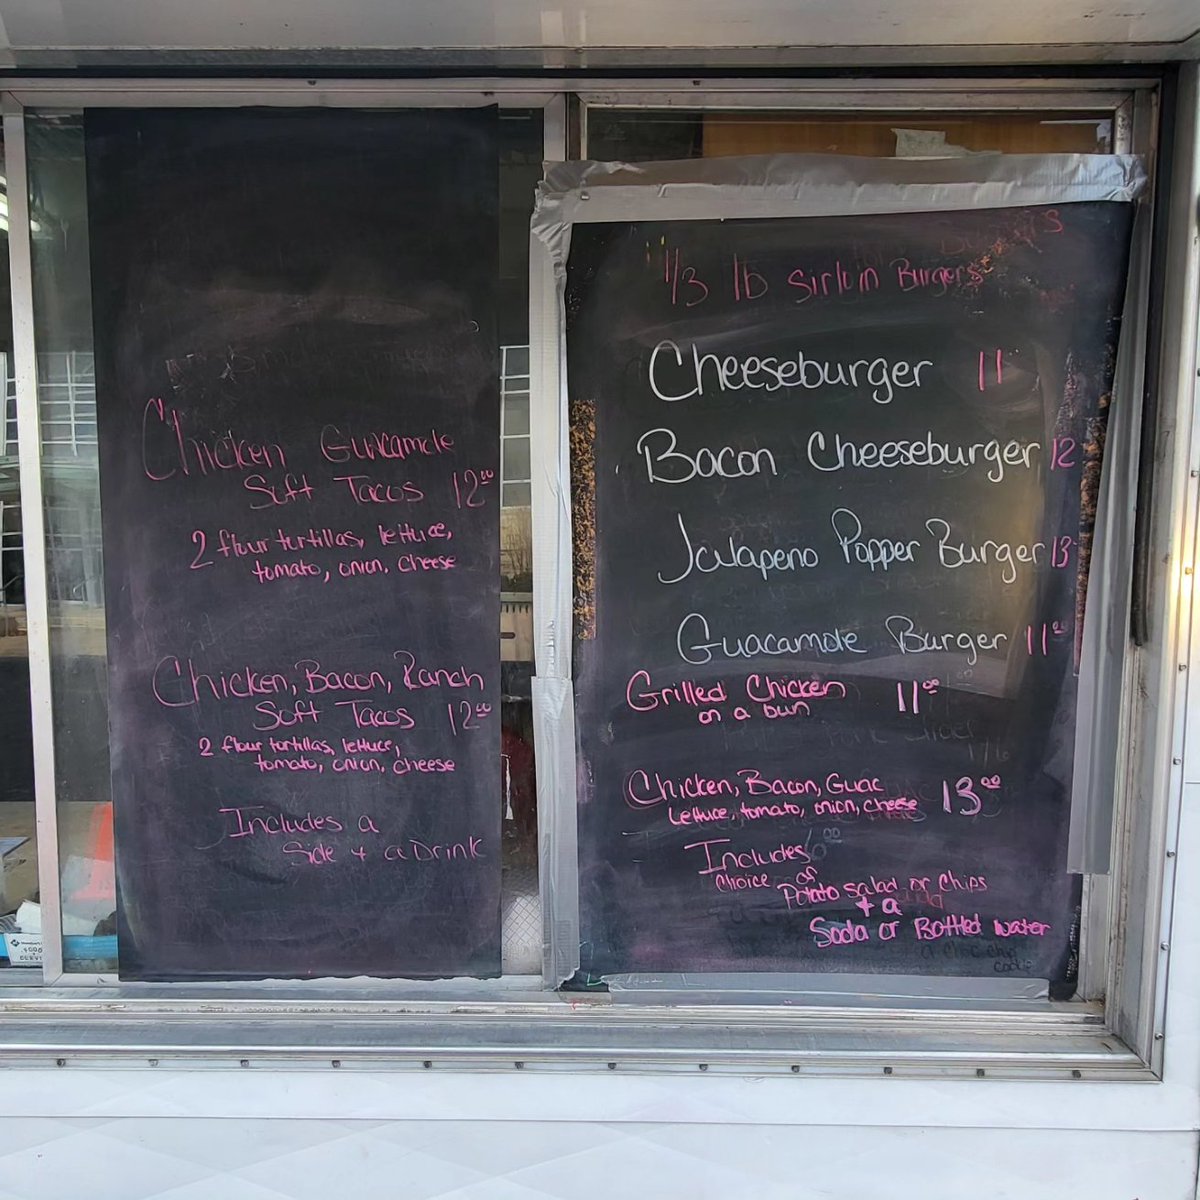 Chicken Guacamole
Soft Tacos 12.00
2 flour tortillas, lettuce,
tomato, onion, cheese
Chicken, Bacon, Ranch
Soft Tacos 12.00
2 flour tortillas, lettuce,
tomato, onion, cheese
Includes a
Side + a Drink
1/3 lb Sirloin Burgers
Cheeseburger 11
Bacon Cheeseburger 12
Jalapeno Popper Burger 13
Guacamole Burger 11.00
Grilled Chicken 11.00
on a bun
Chicken, Bacon, Guac 13.00
lettuce, tomato, onion, cheese
Includes
Choice of
Potato salad or chips
+ a
Soda or Bottled water
a choc chip
cookie